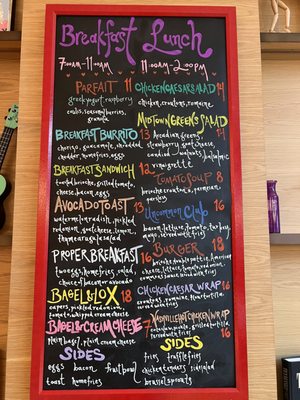 Breakfast Lunch
7:00AM-11:00AM 11:00AM-2:00PM
PARFAIT 11
greek yogurt, raspberry
granola
BREAKFAST BURRITO 13
cheddar, homefries, eggs
BREAKFAST SANDWICH 12
cheese, bacon, eggs
AVOCADO TOAST 13
watermelon radish, pickled
red onion, goat cheese, lemon,
PROPER BREAKFAST 16
two eggs, homefries, salad,
choice of bacon or avocado
BAGEL & LOX 18
capers, pickled red onion,
tomato, whipped cream cheese
BAGEL & CREAM CHEESE 7
plain bagel, plain cream cheese
SIDES
eggs bacon fruit bowl
toast homefries
CHICKEN CAESAR SALAD 14
chicken, croutons, romaine,
MIDTOWN GREENS SALAD 14
Arcadian greens,
strawberry, goat cheese,
candied walnuts, balsamic
vinaigrette
TOMATO SOUP 8
brioche croutons, parmesan
parsley
Uncommon Club 16
bacon, lettuce, tomato, turkey,
mayo, served with fries
BURGER 16
brioche, double pattie, American
cheese, lettuce, tomato, red onion,
sauce, served with fries
CHICKEN CAESAR WRAP 16
croutons, romaine, flour tortilla
NASHVILLE HOT CHICKEN WRAP 16
served with fries
SIDES
fries truffle fries
chicken tenders side salad
brussel sprouts